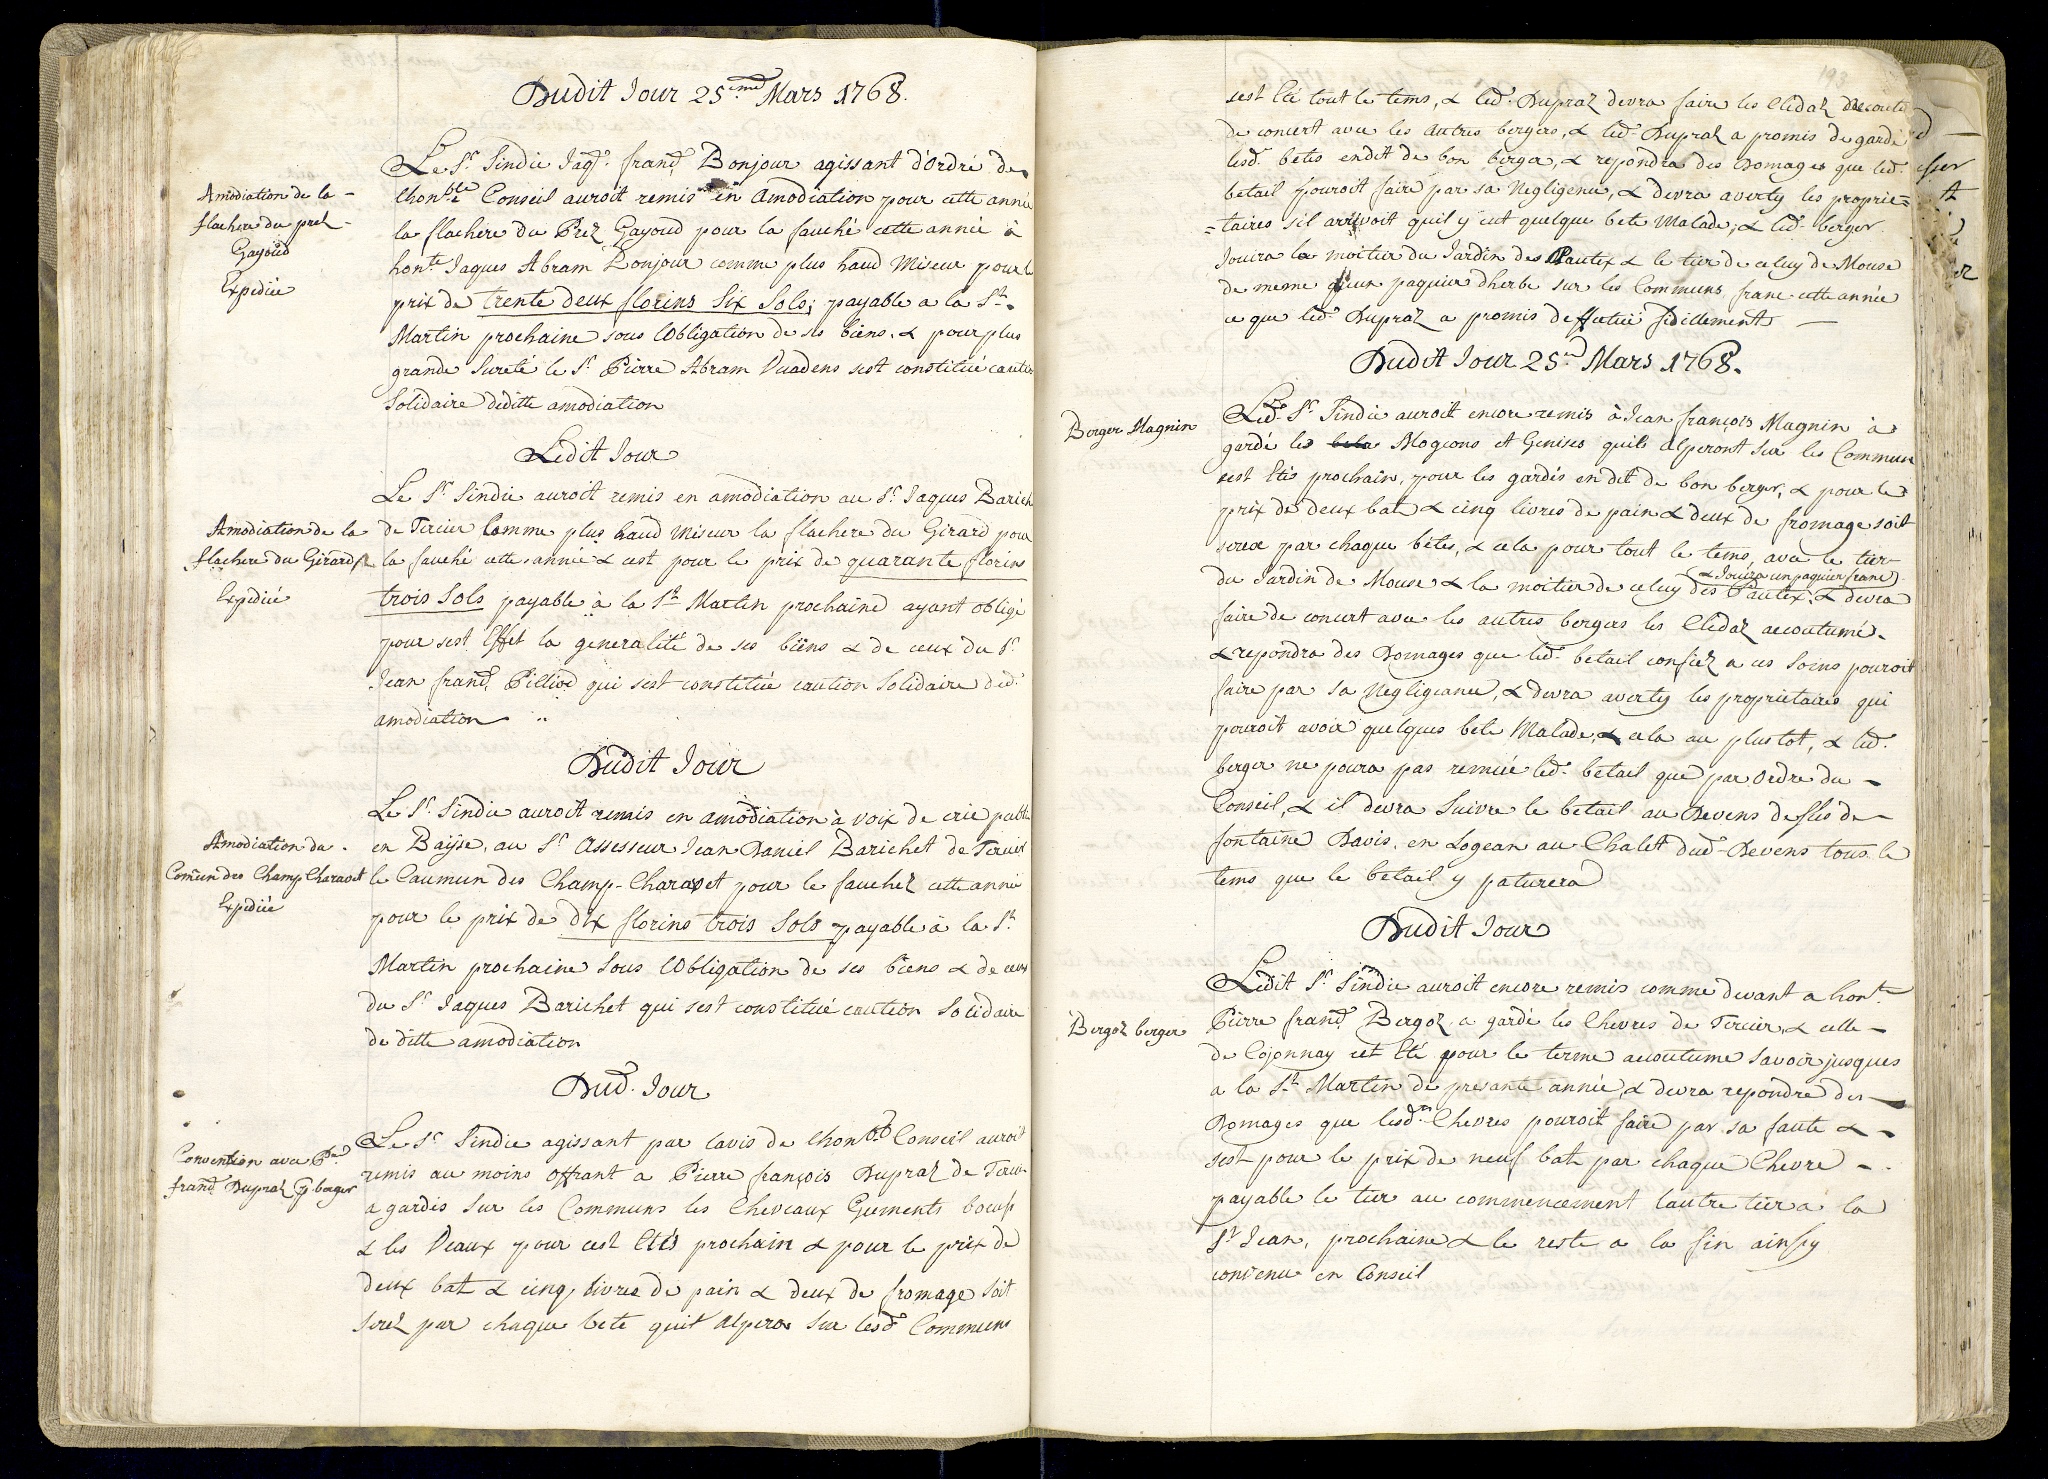 Dudit Jour 25.eme Mars 1768.
Le Sr Sindic Jaqs. frans. Bonjour agissant d'Ordre de
Amodiation de la
flachere du prel
Gayoud
Expediée
lhonble Conseil auroit remis en Amodiation pour cette anné
la flachere du Prez Gayoud pour la fauché cette année à
honte Jaques Abram Bonjour comme plus haud Miseur pour l
prix de trente deux florins Six Sols; payable a la St
Martin prochaine sous l'Obligation de ses biens, & pour plus
grande Sureté le Sr Pierre Abram Vuadens sest constitué cautio
Solidaire deditte amodiation
Ledit Jour
Le Sr Sindic auroit remis en amodiation au Sr Jaques Barich
Amodiation de la
flachere du Girard
Expediée
de Tercier Comme plus haud Miseur la flachere du Girard pour
la fauché cette année & cest pour le prix de quarante florins
trois Sols payable à la St Martin prochaine ayant obligé
pour sest Effet la generalité de ses biens & de ceux du Sr
Jean frans. Pilliod qui sest constitué caution Solidaire ded.
amodiation
Dudit Jour
Le Sr Sindic auroit remis en amodiation à voix de crie publi
Amodiation du
Comun des Champ Charavet
Expediée
en Baÿse, au Sr Assesseur Jean Daniel Barichet de Tercier
le Caumun des Champ-Charavet pour le fauchez cette anné
pour le prix de dix florins trois Sols payable à la St
Martin prochaine Sous l'Obligation de ses biens & de ceux
du Sr Jaques Barichet qui sest constitué caution Solidaire
de ditte amodiation
Dud. Jour
Le Sr Sindic agissant par lavis de lhonble Conseil auroit
Convention avec Pre
frans Dupraz berger
remis au moins Offrant a Pierre françois Dupraz de Tercier
a gardés Sur les Communs les Cheveaux Guments boeufs
& les Veaux pour cest Etés prochain & pour le prix de
deux bat & cinq livres de pain & deux de fromage soit
serez par chaque bete quil Alpera Sur lesd. Communs
193
sest Eté tout le tems, & led. Dupraz devra faire les Clédaz Decouté
de concert avec les Autres bergers, & led. Dupraz a promis de gardé
lesd. betes endit de bon berger, & repondra des Domages que led.
betail pouroit faire par sa Negligence, & devra averty les proprie=
=taires sil arrivoit quil y eut quelque bete Malade; & led. berger
Jouira la moitier du Jardin des Pautex & le tier de celuy de Mouse
de meme quun paquier dherbe sur les Communs, franc cette année
ce que led. Dupraz a promis deffectué fidellement
Dudit Jour 25e Mars 1768.
Berger Magnin
Led. Sr Sindic auroit encore remis à Jean françois Magnin à
gardé les Mogeons et Genises quils alperont sur les Commun
cest Etés prochain, pour les gardés endit de bon berger, & pour le
prix de deux bat & cinq livres de pain & deux de fromage soit
serex par chaque bêtes, & cela pour tout le tems, avec le tier
& Jouira un paquier franc
du Jardin de Mouse & la moitier de celuy des Pautex; & devra
faire de concert avec les autres bergers les Clédaz accoutumé
& repondra des Domages que led. betail confiez a ces soins pouroit
faire par sa Negligeance, & devra averty les proprietaires qui
pouroit avoir quelques bete Malade, & cela au plustot, & led.
berger ne poura pas remuée led. betail que par Ordre du
Conseil, & il devra Suivre le betail au Devens desles de
fontaine Davis, en Logeans au Chalet dud. Devens tous le
tems que le betail y paturera
Dudit Jour
Ledit Sr Sindic auroit encore remis comme devant a hont.
Bergoz berger
Pierre frans. Bergoz a gardé les Chevres de Tercier, & celle
de Cojonnay cet Eté pour le terme accoutume savoir jusques
a la St Martin de presante année, & devra repondre des
Domages que lesd.es Chevres pouroit faire par sa faute &
sest pour le prix de neuf bat par chaque Chevre
payable le tier au commencement lautre tier a la
St Jean, prochaine & le reste a la fin ainsy
convenu en Conseil